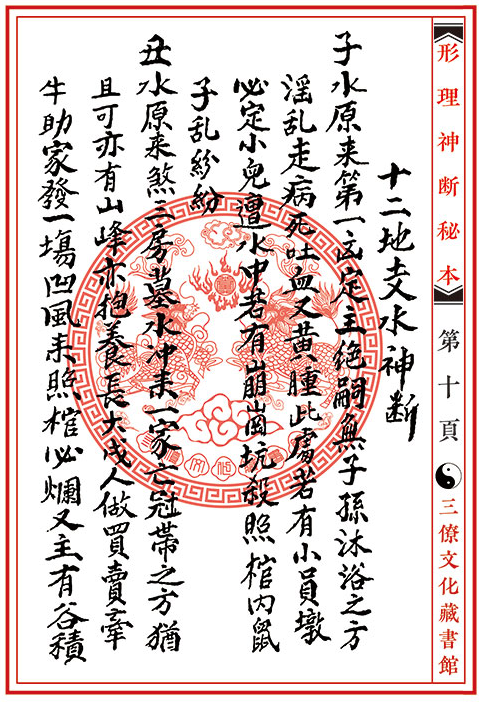 形理神断秘本
第十頁
三僚文化藏書館
十二地支水神断
子水原来第一玄定主绝嗣無子孫沐浴之方
淫乱走病死吐血又黄腫此處若有小員墩
必定小兒遭水冲若有崩崗坑殺照棺内鼠
子乱紛紛
丑水原来煞三房墓水冲来一家亡冠帶之方猶
且可亦有山峰亦抱养長大成人做買賣牽
牛助家發一塲凹風来照棺必爛又主有谷積